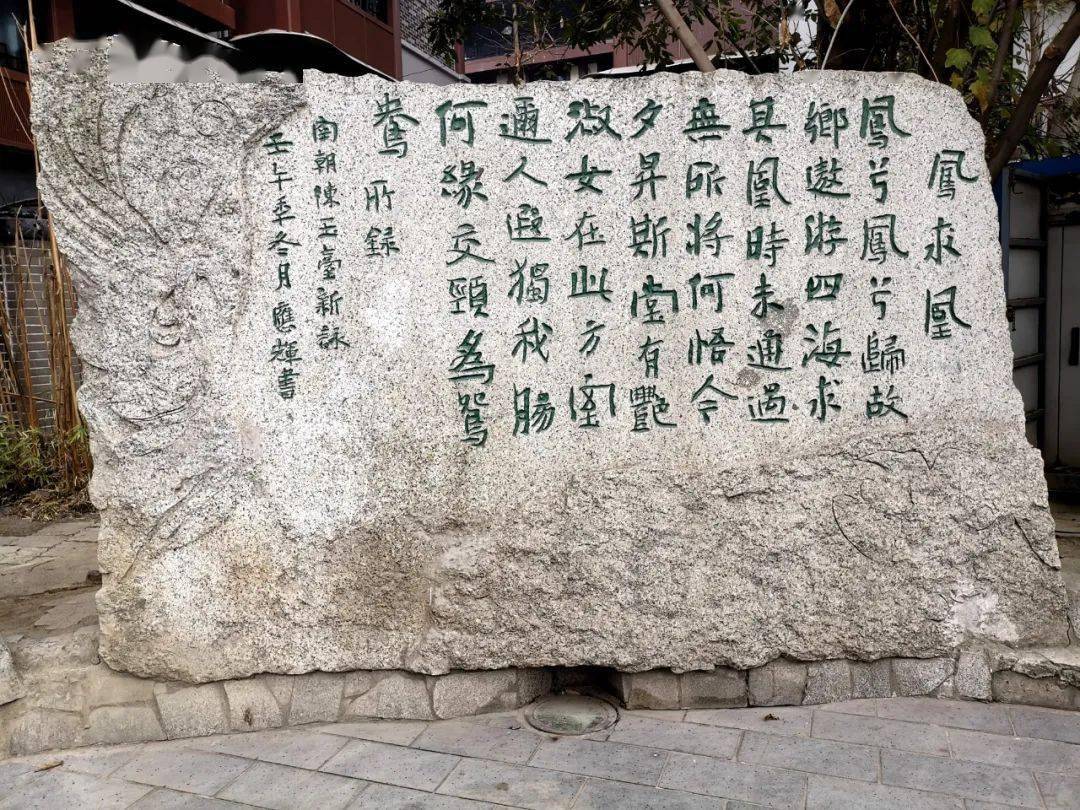 鳳求凰
鳳兮鳳兮歸故
鄉遨游四海求
其凰時未通遇
無所將何悟今
夕昇斯堂有艷
淑女在此方室
邇人遐獨我腸
何緣交頸為鴛
鴦 所錄
南朝陳玉臺新詠
壬午年冬月應輝書